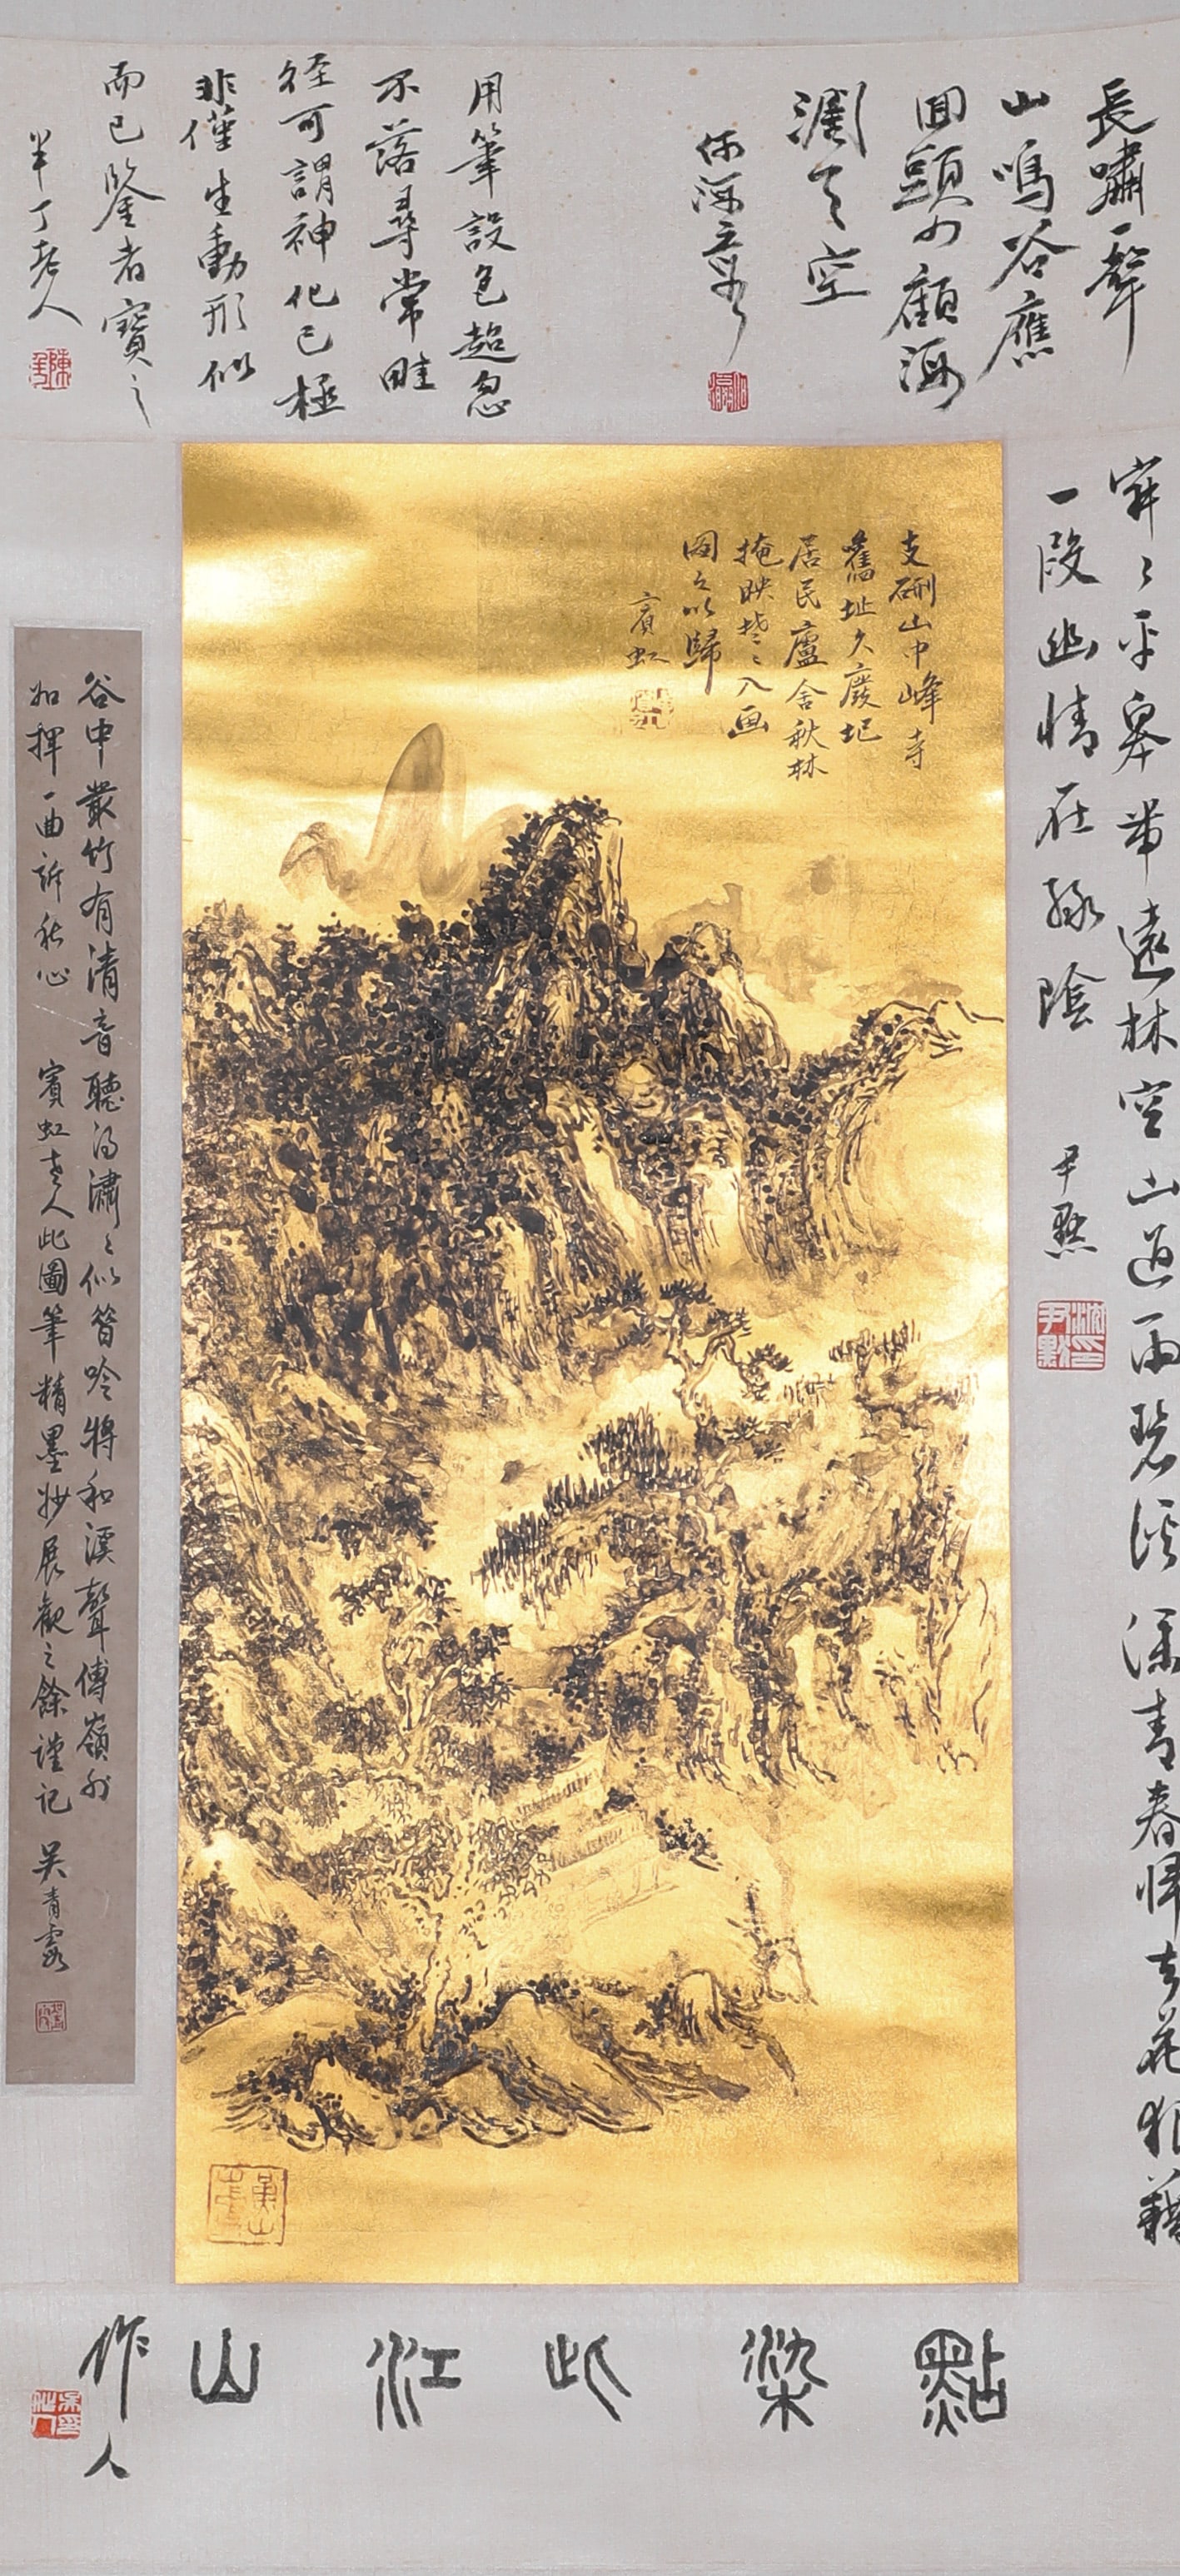 長嘯一聲
山鳴谷應
回頭四顧海
濶天空
用筆設色超忽
不落尋常畦
径可謂神化已極
非僅生動形似
而已鑒者寶之
半丁老人
支硎山中峰寺
舊址久廢圮
居民廬舍秋林
掩映楚〻入画
圖之以歸
賓虹
平皋帶遠林空山過雨碧溪深青春歸去花狼藉
一段幽情在綠陰
尹默
沈尹默印
谷中叢竹有清音聽得瀟〻似笛吟將和溪聲傳嶺外
如揮一曲訴秋心 賓虹老人此圖筆精墨妙展觀之餘謹記 吴青霞
點染此江山
作人
黃山